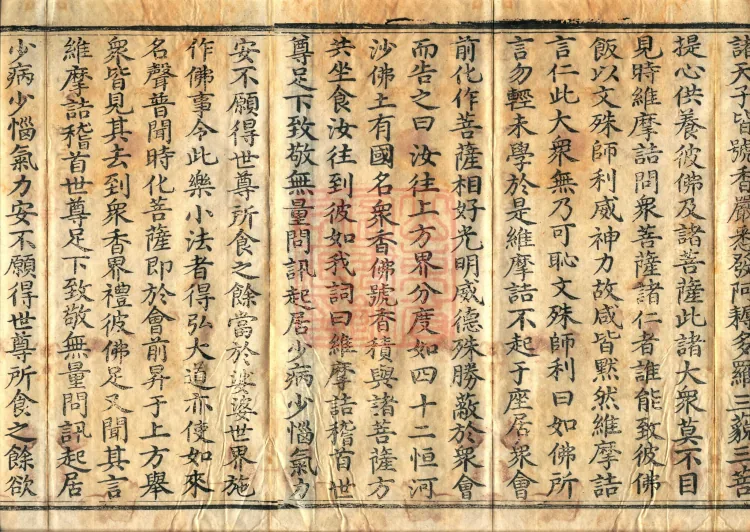 諸天子皆號香嚴悉發阿耨多羅三藐三菩
提心供養彼佛及諸菩薩此諸大衆莫不目
見時維摩詰問衆菩薩諸仁者誰能致彼佛
飯以文殊師利威神力故咸皆默然維摩詰
言仁此大衆無乃可恥文殊師利曰如佛所
言勿輕未學於是維摩詰不起于座居衆會
前化作菩薩相好光明威德殊勝蔽於衆會
而告之曰汝往上方界分度如四十二恒河
沙佛土有國名衆香佛號香積與諸菩薩方
共坐食汝往到彼如我詞曰維摩詰稽首世
尊足下致敬無量問訊起居少病少惱氣力
安不願得世尊所食之餘當於娑婆世界施
作佛事令此樂小法者得弘大道亦使如來
名聲普聞時化菩薩即於會前昇于上方舉
衆皆見其去到衆香界禮彼佛足又聞其言
維摩詰稽首世尊足下致敬無量問訊起居
少病少惱氣力安不願得世尊所食之餘欲